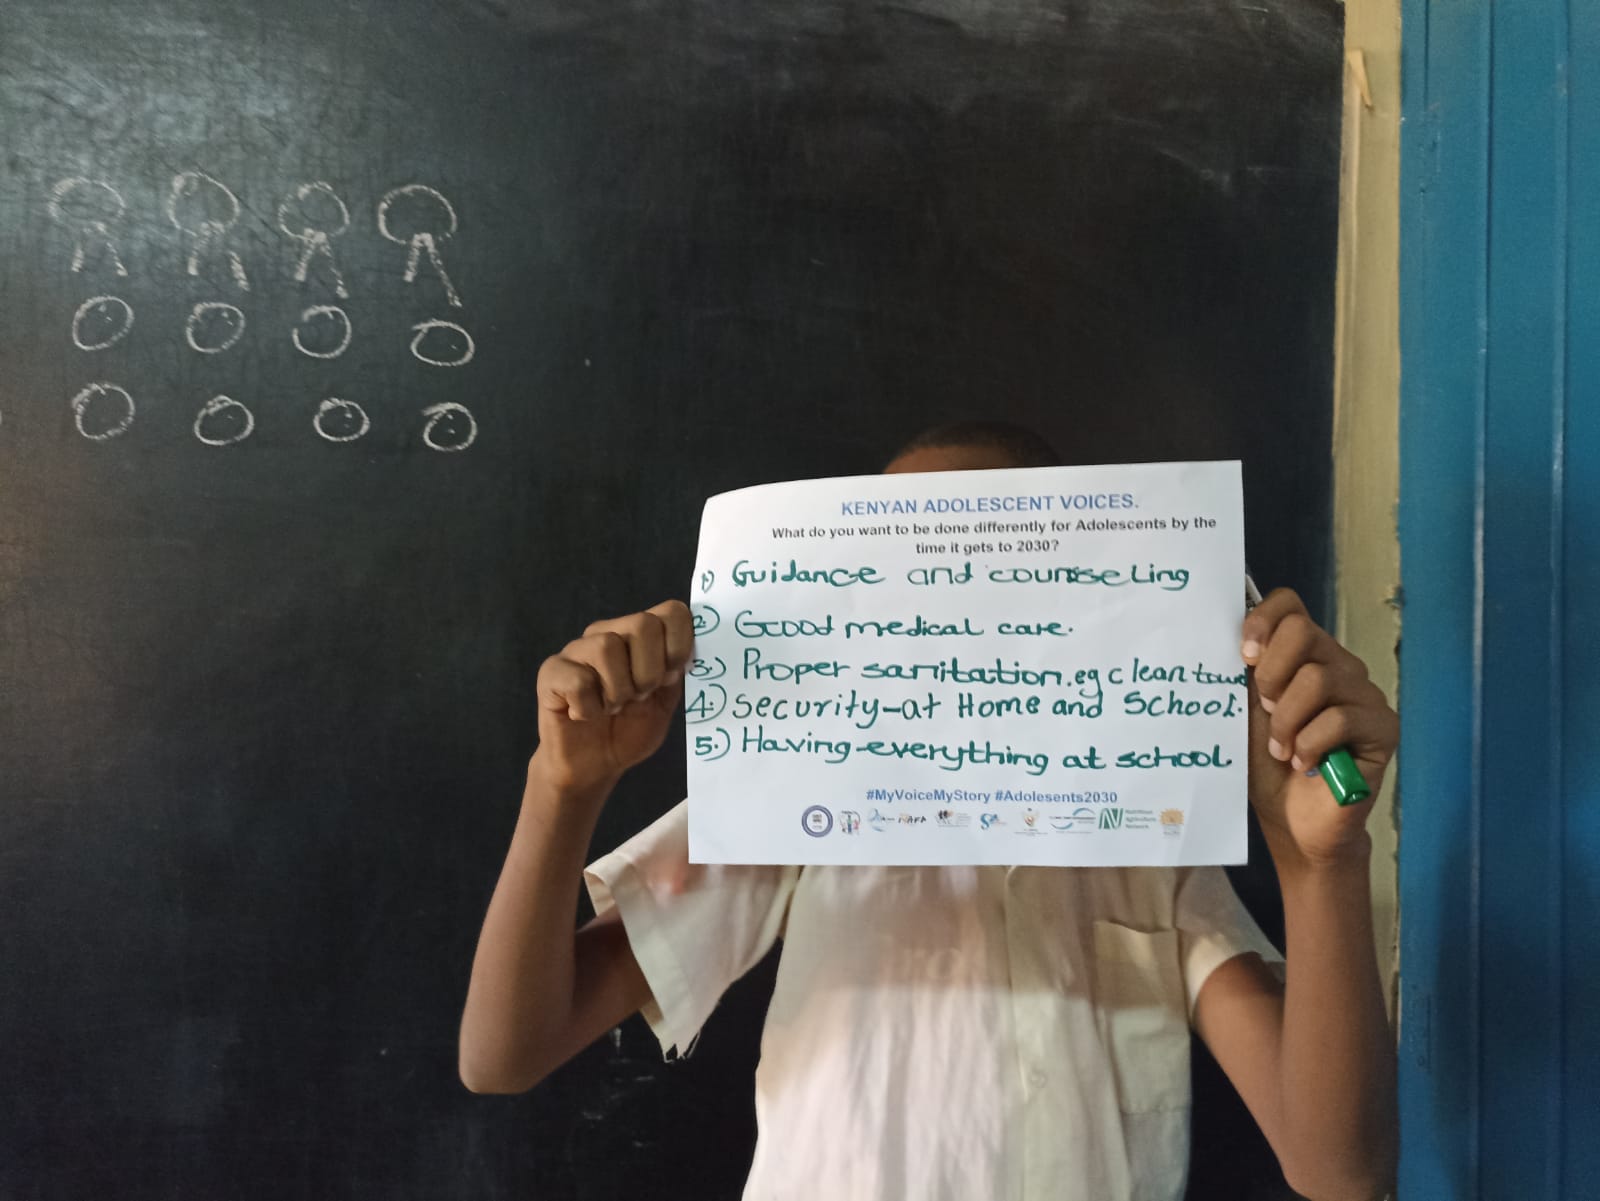 KENYAN ADOLESCENT VOICES.
What do you want to be done differently for Adolescents by the
time it gets to 2030?
1) Guidance and counseling
2) Good medical care.
3.) Proper sanitation.eg clean
4.) Security-at Home and School.
5.) Having everything at school.
#MyVoiceMyStory #Adolesents2030